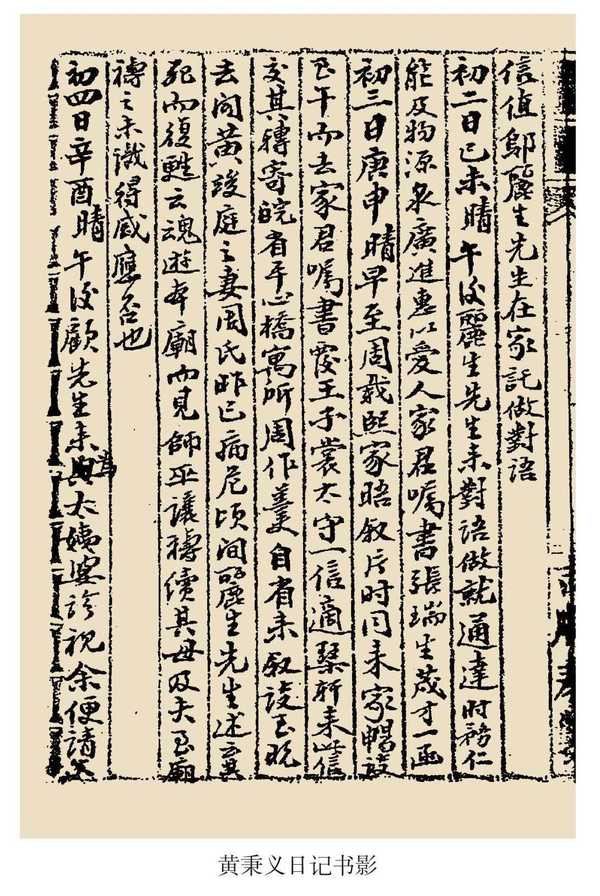 信值鄔麗生先生在家託做對語
初二日己未晴午後麗生先生来對語做就通達時務仁
能及物源泉廣進惠以愛人家君囑書張瑞生茂才一函
初三日庚申晴早至周載熙家晤敘片时同来家暢談
至午而去家君囑書覆王子裳太守一信適琹軒来此信
交其轉寄皖省平心橋寓所周作羹自省来敘談至晚
去间黄竣庭之妻周氏昨已病危頃间麗生先生述言其
死而復甦云魂遊本廟而見師巫讓禱續其母及夫至廟
禱之未識得感應否也
初四日辛酉晴午後顧先生来為太姨婆診視余便請其
黄秉义日记书影